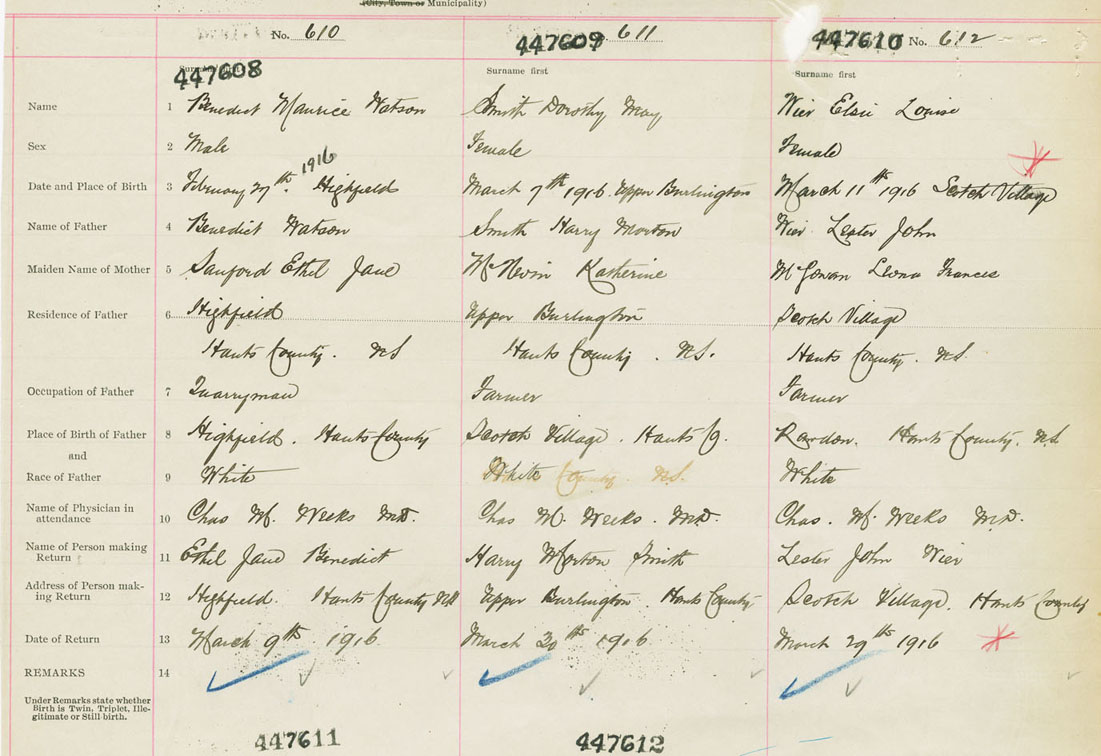 (City, Town or Municipality)
No. 610 447609 611 447610 No. 612
447608 Surname first Surname first
Name 1 Benedict Maurice Watson Smith Dorothy May Wier Elsie Louise
Sex 2 Male Female Female
1916
Date and Place of Birth 3 February 27th. Highfields March 7th 1916 Upper Burlington March 11th 1916 Scotch Village
Name of Father 4 Benedict Watson Smith Harry Morton Wier Lester John
Maiden Name of Mother 5 Sanford Ethel Jane McNevin Katherine McGowan Leona Frances
Residence of Father 6 Highfield Upper Burlington Scotch Village
Hants County. NS Hants County. N.S. Hants County. NS.
Occupation of Father 7 Quarryman Farmer Farmer
Place of Birth of Father 8 Highfield. Hants County Scotch Village. Hants Co. Rawdon. Hants County. NS
and
Race of Father 9 White White County. N.S. White
Name of Physician in
attendance 10 Chas M. Weeks M.D. Chas M. Weeks. M.D. Chas. M. Weeks M.D.
Name of Person making
Return 11 Ethel Jane Benedict Harry Morton Smith Lester John Wier
Address of Person mak-
ing Return 12 Highfield. Hants County NS Upper Burlington. Hants County Scotch Village. Hants County
Date of Return 13 March 9th 1916. March 20th 1916 March 29th 1916
REMARKS 14
Under Remarks state whether
Birth is Twin, Triplet, Ille-
gitimate or Still birth.
447611 447612